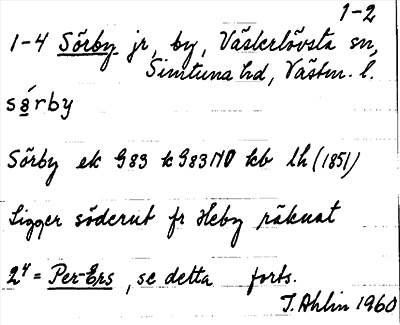 1-2
1-4 Sörby jr, by, Västerlövsta sn,
Simtuna hd, Västm. l.
sö́rby
Sörby ek G83 k G83NO kb lh (1851)
Ligger söderut fr Heby räknat
2⁴ = Per-Ers, se detta forts.
T. Ahlin 1960